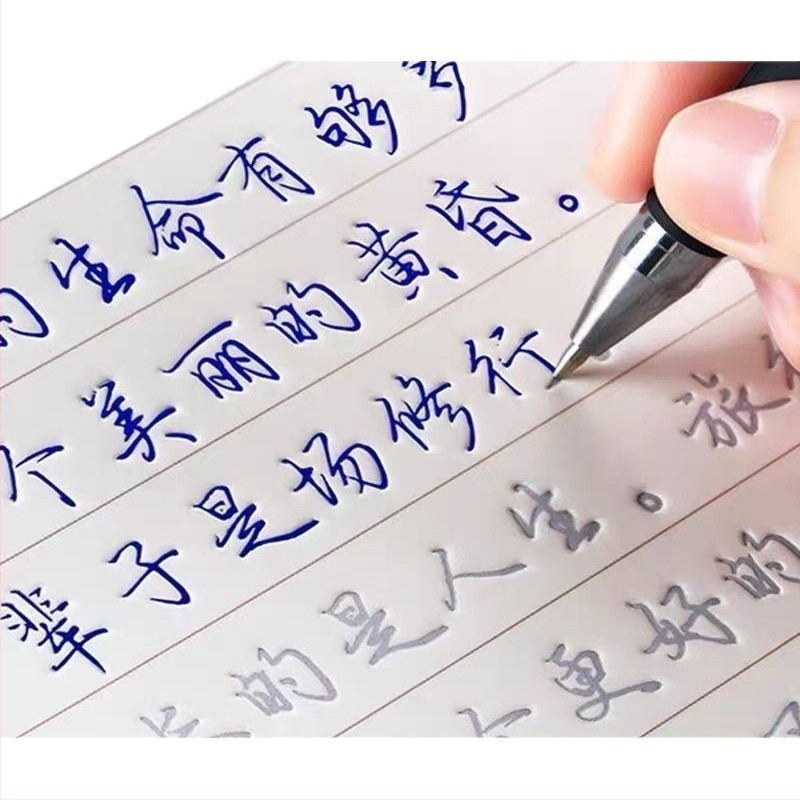 的生命有够多
个美丽的黄昏。
辈子是场修行
长的是人生。旅
更好的